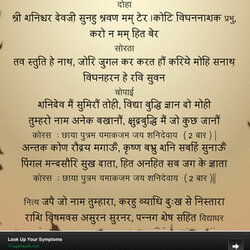 दोहा
श्री शनिश्चर देवजी सुनहु श्रवण मम् टेर ।कोटि विघ्ननाशक प्रभु,
करो न मम् हित बेर
सोरठा
तव स्तुति हे नाथ, जोरि जुगल कर करत हौं करिये मोहि सनाथ
विघनहरन हे रवि सुवन
चोपाई
शनिदेव मैं सुमिरौं तोही, विद्या बुद्धि ज्ञान दो मोही
तुम्हरो नाम अनेक बखानौं, क्षुद्रबुद्धि मैं जो कुछ जानौं
कोरस : छाया पुत्रम यमाकजम जय शनिदेवाय ( 2 बार ) |
अन्तक कोण रौद्रय मगाऊँ, कृष्ण बभ्रु शनि सबहिं सुनाऊँ
पिंगल मन्दसौरि सुख दाता, हित अनहित सब जग के ज्ञाता
कोरस : छाया पुत्रम यमाकजम जय शनिदेवाय ( 2 बार )
नित्य जपै जो नाम तुम्हारा, करहु व्याधि दुःख से निस्तारा
राशि विषमवस असुरन सुरनर, पन्नग शेष सहित विद्याधर
Look Up Your Symptoms